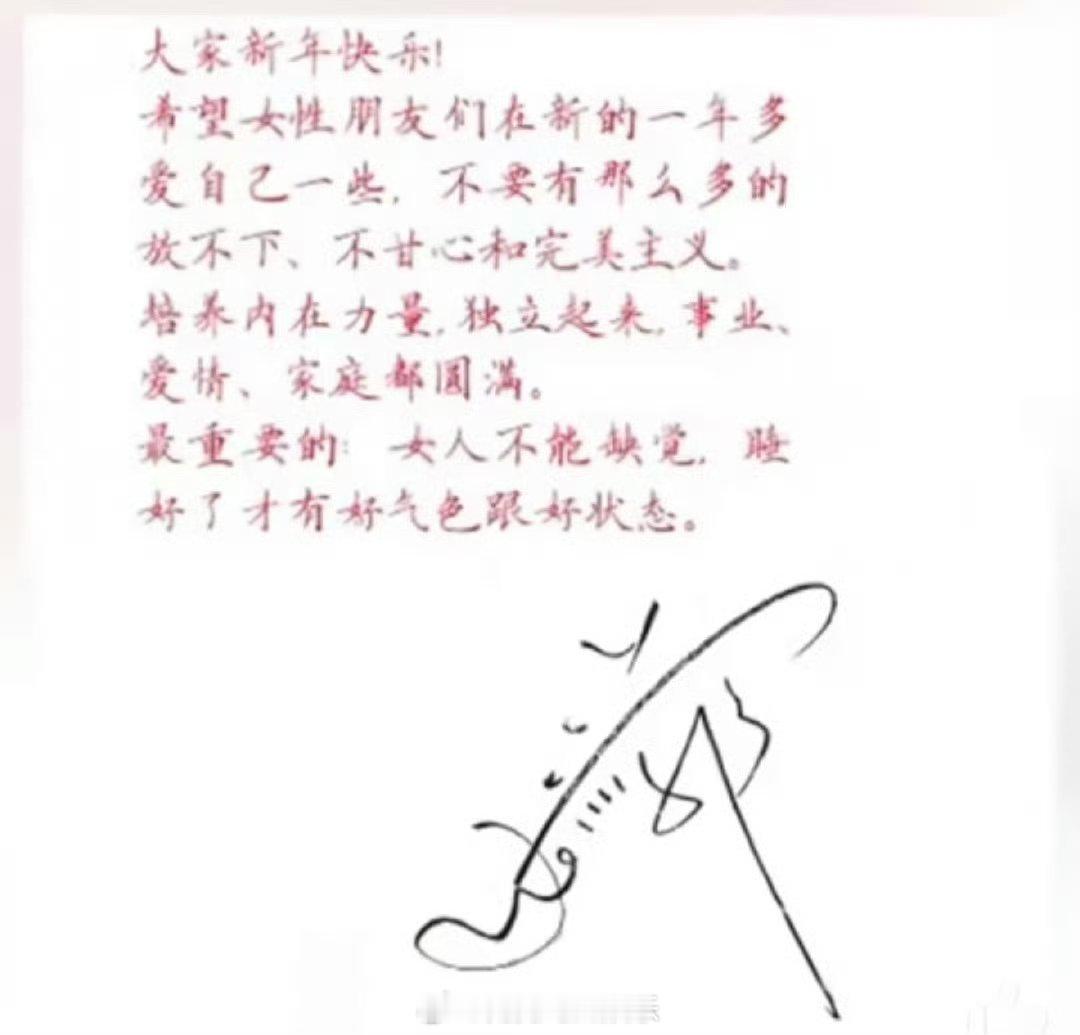 大家新年快乐!
希望女性朋友们在新的一年多
爱自己一些, 不要有那么多的
放不下、不甘心和完美主义。
培养内在力量,独立起来,事业、
爱情、家庭都圆满。
最重要的: 女人不能缺觉, 睡
好了才有好气色跟好状态。